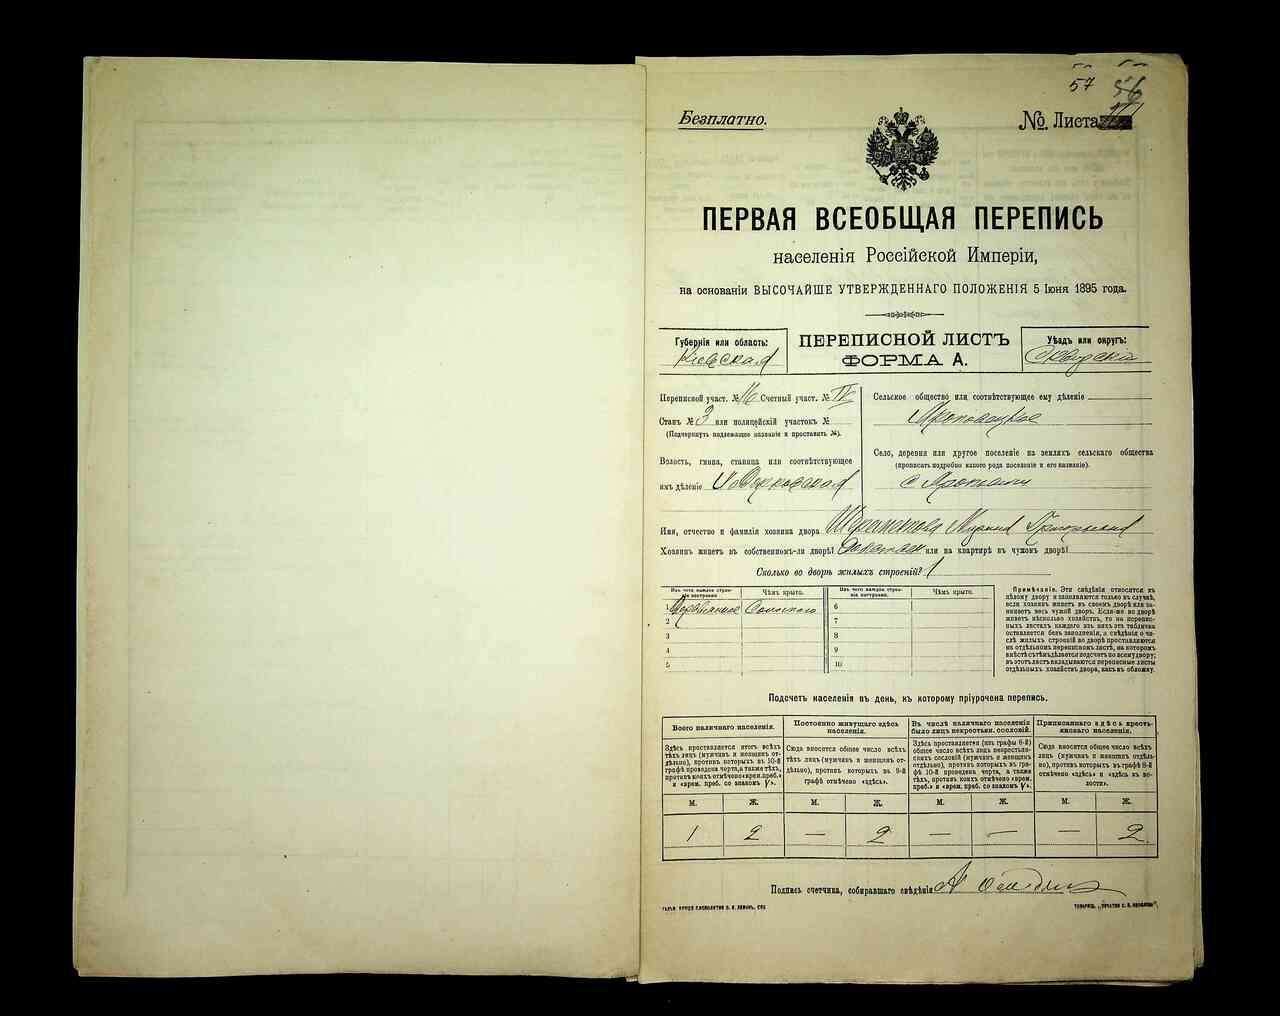 57 56
Безплатно.
№ Листа
ПЕРВАЯ ВСЕОБЩАЯ ПЕРЕПИСЬ
населенія Россійской Имперіи,
на основаніи ВЫСОЧАЙШЕ УТВЕРЖДЕННАГО ПОЛОЖЕНІЯ 5 Іюня 1895 года.
Губернія или область:
Кіевская
ПЕРЕПИСНОЙ ЛИСТЪ
ФОРМА А.
Уѣздъ или округъ:
Сквирскій
Переписной участ. № 16 Счетный участ. № IV
Станъ № 3 или полицейскій участокъ №
(Подчеркнуть подлежащее названіе и проставить №).
Волость, гмина, станица или соотвѣтствующее
имъ дѣленіе
Сельское общество или соотвѣтствующее ему дѣленіе
Село, деревня или другое поселеніе на земляхъ сельскаго общества
(прописать подробно какого рода поселеніе и его названіе).
с
Имя, отчество и фамилія хозяина двора
Хозяинъ живетъ въ собственномъ-ли дворѣ? или на квартирѣ въ чужомъ дворѣ?
Сколько во дворѣ жилыхъ строеній? 1
Изъ чего каждое строеніе построено.
Чѣмъ крыто.
Изъ чего каждое строеніе построено.
Чѣмъ крыто.
1 Деревянное Соломою
2
3
4
5
6
7
8
9
10
Примѣчаніе. Эти свѣдѣнія относятся къ
цѣлому двору и заполняются только въ случаѣ,
если хозяинъ живетъ въ своемъ дворѣ или за-
нимаетъ весь чужой дворъ. Если-же во дворѣ
живетъ нѣсколько хозяйствъ, то на перепис-
ныхъ листахъ каждаго изъ нихъ эта табличка
оставляется безъ заполненія, а свѣдѣнія о чи-
слѣ жилыхъ строеній во дворѣ проставляются
на отдѣльномъ переписномъ листѣ, на которомъ
вмѣстѣ съ тѣмъ дѣлается подсчетъ по всему двору;
въ этотъ листъ вкладываются переписные листы
отдѣльныхъ хозяйствъ двора, какъ въ обложку.
Подсчетъ населенія въ день, къ которому пріурочена перепись.
Всего наличнаго населенія.
Здѣсь проставляется итогъ всѣхъ
лицъ (мужчинъ и женщинъ от-
дѣльно), противъ которыхъ въ 10-й
графѣ проведена черта, а также тѣхъ,
противъ коихъ отмѣчено «врем. преб.»
и «врем. преб. со знакомъ V».
Постоянно живущаго здѣсь
населенія.
Сюда вносится общее число всѣхъ
тѣхъ лицъ (мужчинъ и женщинъ от-
дѣльно), противъ которыхъ въ 9-й
графѣ отмѣчено «здѣсь».
Въ числѣ наличнаго населенія
было лицъ некрестьян. сословій.
Здѣсь проставляется (изъ графы 6-й)
общее число всѣхъ лицъ некрестьян-
скихъ сословій (мужчинъ и женщинъ
отдѣльно), противъ которыхъ въ гра-
фѣ 10-й проведена черта, а также
тѣхъ, противъ коихъ отмѣчено «врем.
преб.» и «врем. преб. со знакомъ V».
Приписаннаго здѣсь кресть-
янскаго населенія.
Сюда вносится общее число всѣхъ
лицъ (мужчинъ и женщинъ отдѣль-
но), противъ которыхъ въ графѣ 8-й
отмѣчено «здѣсь» и «здѣсь въ во-
лости».
М. Ж. М. Ж. М. Ж. М. Ж.
1 2 — 2 — — — 2
Подпись счетчика, собиравшаго свѣдѣнія